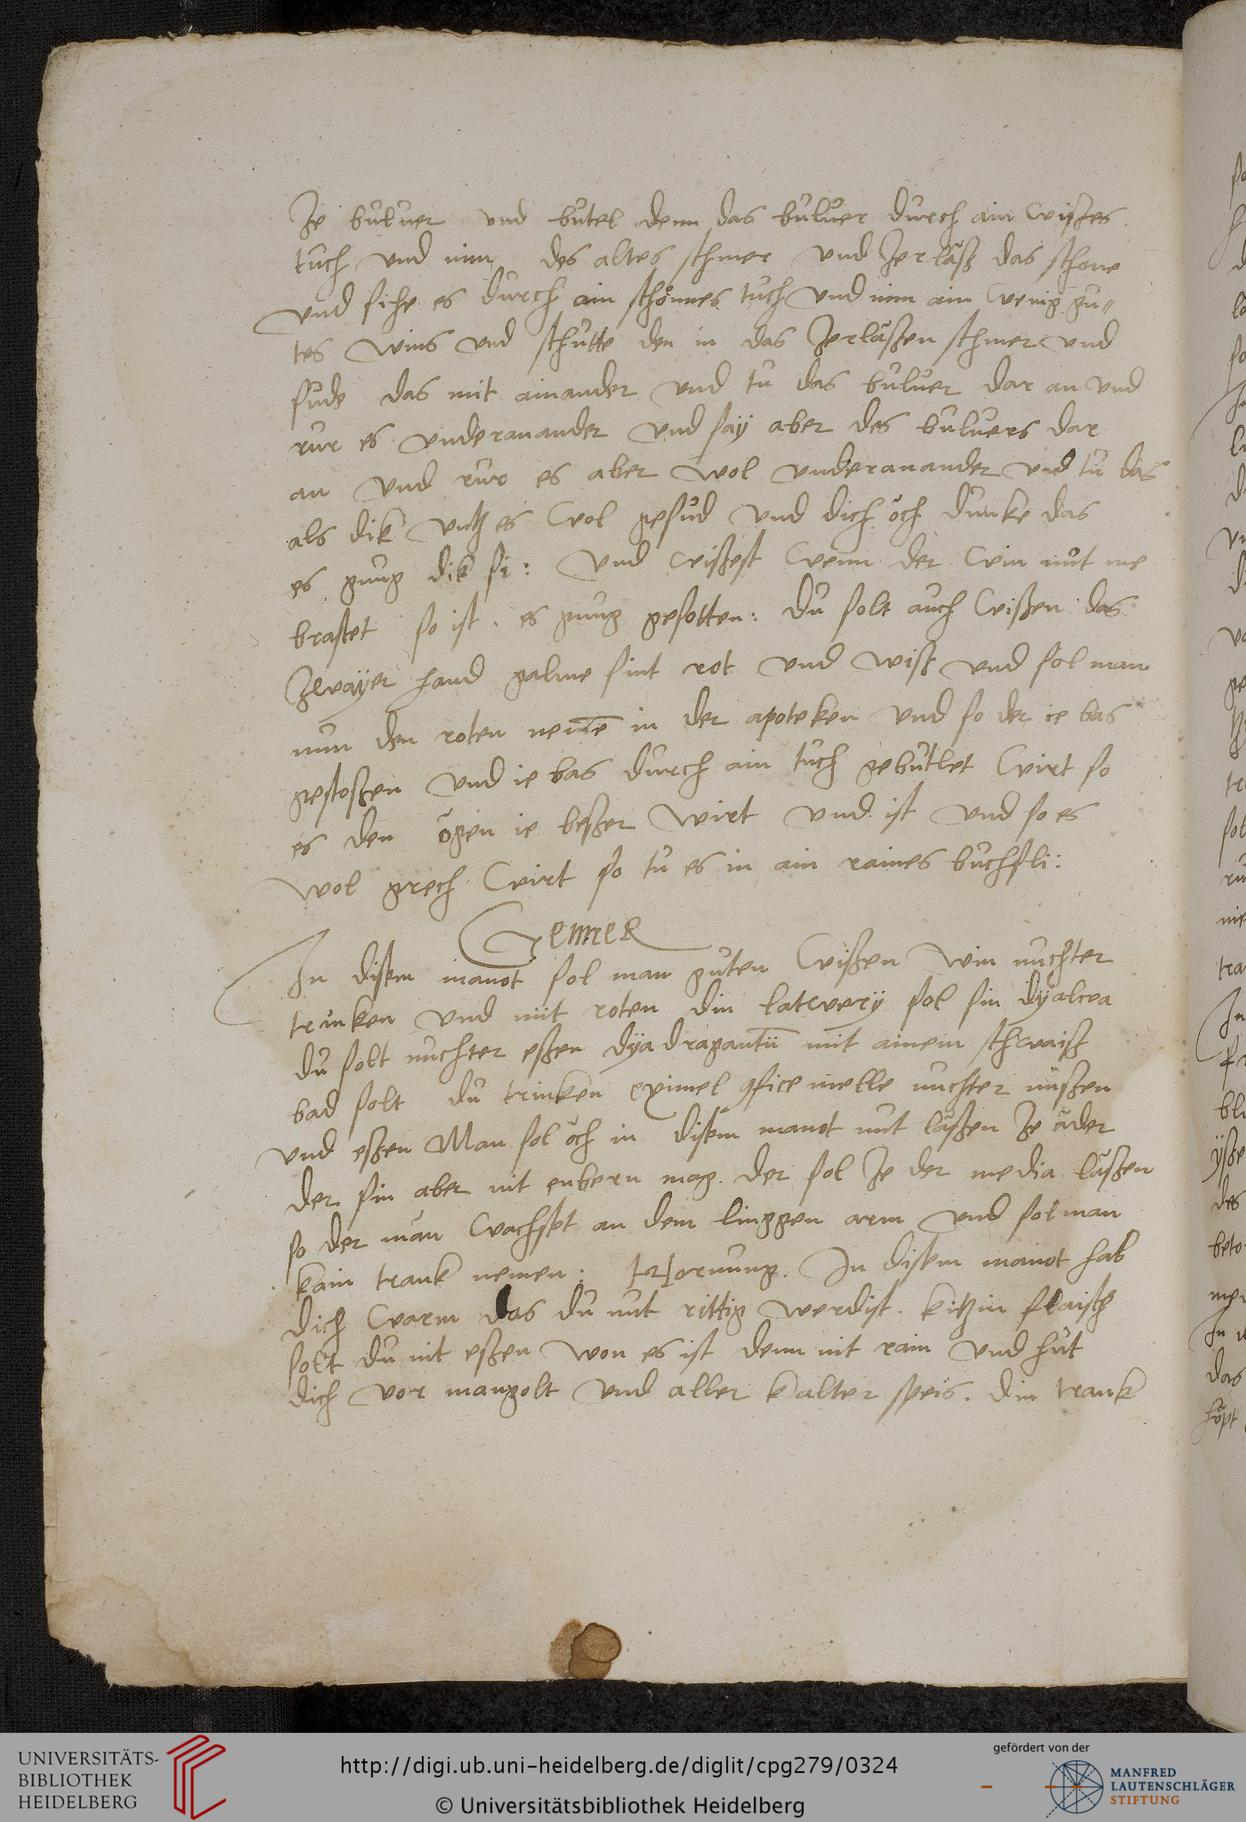 ze buluer und butel denn das buluer durch ain wisses
tuch und nim des altes schmer und zerlaͤß das schone
und sihe es durch ain schoͤnnes tuch und nim ain wenig gu„
tes wins und schutte den in das zerlaͤßen schmer und
sude das mit ainander und tu das buluer dar an und
rur es underanander und saÿ aber des buluers dar
an und rur es aber wol underanander und tu das
als dik untz es wol gesud und dich oͤch dunke das
es gnug dik si: und wißest wenn der win nut me
brastet so ist es gnug gesotten: du solt auch wißen das
zwaÿer hand galme sint rot und wiß und sol man
nun den roten nemē in der apoteken und so der ie bas
gestoßen und ie bas durch ain tuch gebutlet wirt so
es den oͤgen ie beßer wirt und ist und so es
wol grech wirt so tu es in ain raines buchsli:
Genner
In disem manot sol man guten wißen win nuchter
trinken und mit roten din latwerÿ sol sin dÿaltea
du solt nuchter eßen dÿadragantū mit ainem schwaiß
bad solt du trinken oximel 9fice melle nuchter nußen
und eßen Man sol oͤch in disem manot nut laͤßen ze aͤder
der sin aber nit enbern mag der sol ze der media laͤßen
so der man wachset an dem linggen arm und sol man
kain trank nemen: Hornung. In disem manot hab
dich warm das du nut rittig werdist. kitzin flaisch
solt du nit eßen won es ist denn nit rain und hut
dich vor mangolt und aller kalter speis. din trank
UNIVERSITÄTS-
BIBLIOTHEK
HEIDELBERG
http://digi.ub.uni-heidelberg.de/diglit/cpg279/0324
© Universitätsbibliothek Heidelberg
gefördert von der
MANFRED
LAUTENSCHLÄGER
STIFTUNG